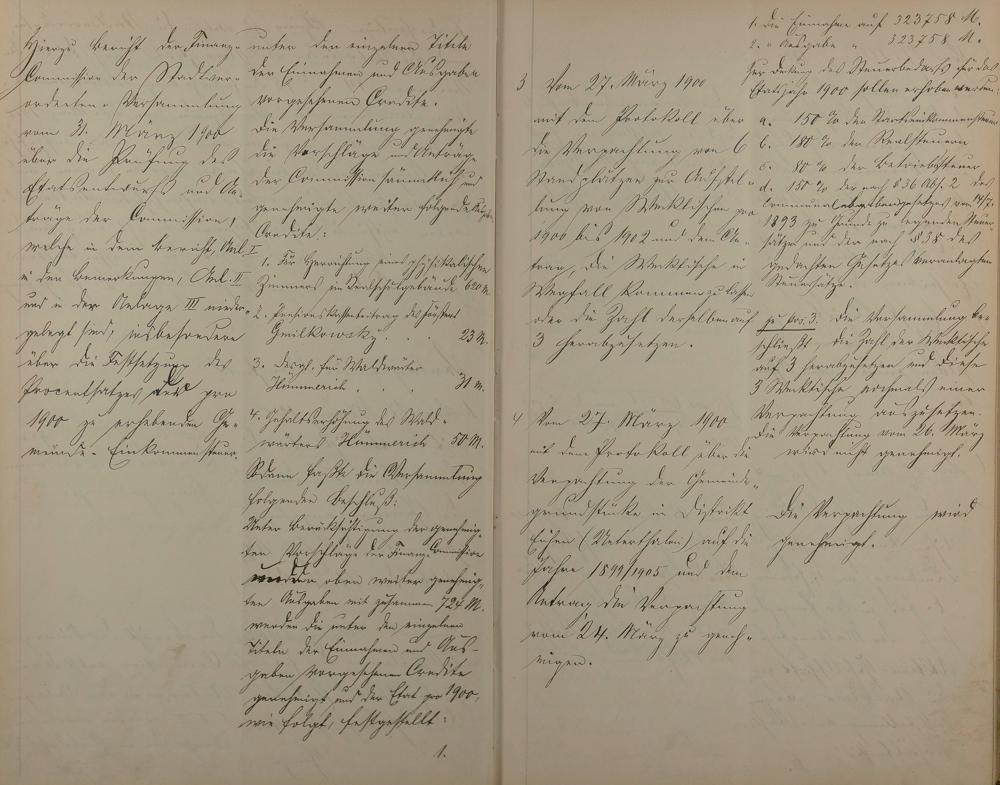 Hierzu Bericht der Finanz-
Commission der Stadtver-
ordneten-Versammlung
vom 31. März 1900
über die Prüfung des
Etatsentwurfs und An-
träge der Commission,
welche in dem Bericht, Anl. I
in den Bemerkungen, Anl. II
und in der Anlage III nieder-
gelegt sind, insbesondere
über die Festsetzung des
Procentsatzes der pro
1900 zu erhebenden Ge-
meinde-Einkommensteuer.
unter den einzelnen Titeln
der Einnahmen und Ausgaben
vorgesehenen Credite.
Die Versammlung genehmigte
die Vorschläge und Anträge
der Commission sämmtlich und
genehmigte weiter folgende
Credite:
1. Für Herrichtung eines physikalischen
Zimmers im Realschulgebäude 620 M.
2. Pensionskassenbeitrag des Försters
Gmilkowsky . . . 23 M.
3. desgl. für Waldwärter
Hümmerich . 31 M.
4. Gehaltserhöhung des Wald-
wärters Hümmerich 50 M.
Sodann faßte die Versammlung
folgenden Beschluß:
Unter Berücksichtigung der genehmig-
ten Vorschläge der Finanz-Commission
oben weiter genehmig-
ten Ausgaben mit zusammen 724 M.
werden die unter den einzelnen
Titeln der Einnahmen und Aus-
gaben vorgesehenen Credite
genehmigt und der Etat pro 1900,
wie folgt, festgestellt:
1.
1. die Einnahme auf 323758 M.
2. " Ausgabe " 323758 M.
Zur Deckung des Steuerbedarfs für das
Etatsjahr 1900 sollen erhoben werden:
a. 150 % der Staatseinkommensteuer
b. 180 % der Realsteuern
c. 80 % der Betriebssteuer
d. 150 % der nach § 36 Abs. 2 des
Communalabgabengesetzes vom 14/7.
1893 zu Grunde zu legenden Steuer-
sätze und der nach § 38 des
gedachten Gesetzes veranlagten
Steuersätze.
3 Vom 27. März 1900
mit dem Protokoll über
die Verpachtung von 6
Standplätzen zur Aufstel-
lung von Werktischen pro
1900 bis 1902 und dem An-
trag, die Werktische in
Wegfall kommen zu lassen
oder die Zahl derselben auf
3 herabzusetzen.
zu Pos. 3. Die Versammlung be-
schließt, die Zahl der Werktische
auf 3 herabzusetzen und diese
3 Werktische nochmals einer
Verpachtung auszusetzen.
Die Verpachtung vom 26. März
wird nicht genehmigt.
4 Vom 27. März 1900
mit dem Protokoll über die
Verpachtung der Gemeinde-
grundstücke in Distrikt
(Unterthalen) auf die
Jahre 1899/1905 und dem
Antrag, die Verpachtung
vom 24. März zu geneh-
migen.
Die Verpachtung wird
genehmigt.